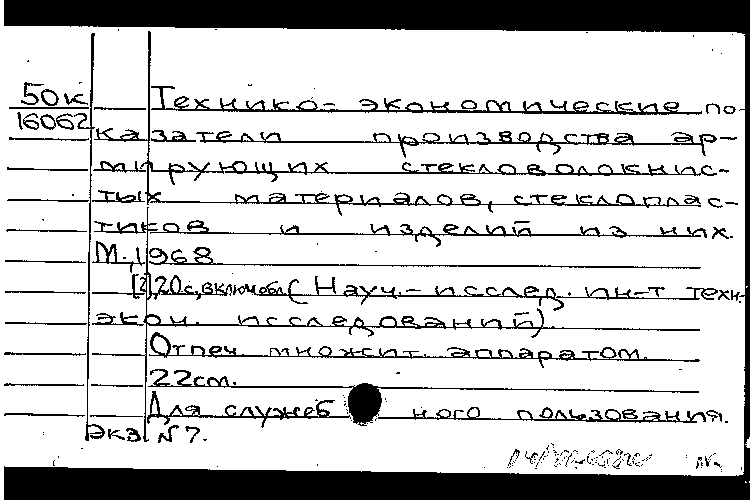 50к
16062
Технико-экономические по-
казатели производства ар-
мирующих стекловолокнис-
тых материалов, стеклоплас-
тиков и изделий из них.
М., 1968
[2], 20с, включ. обл. (Науч.-исслед. ин-т техн.-
экон. исследований).
Отпеч. множит. аппаратом.
22см.
Для служебного пользования.
Экз. №7.